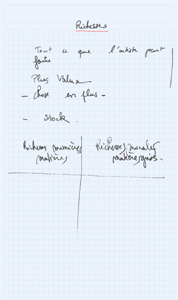 Richesses
Tout ce que l'artiste peut
faire
Plus Values
- Chose en plus -
- Stock
Richesses premières Richesses morales
matières matières